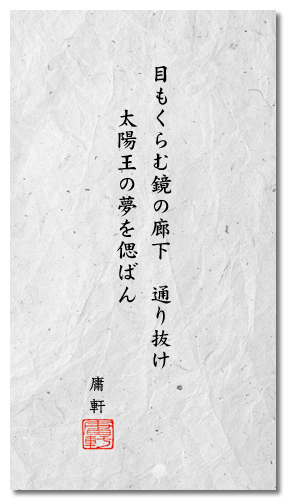 目もくらむ鏡の廊下　通り抜け
太陽王の夢を偲ばん
庸軒
庸軒